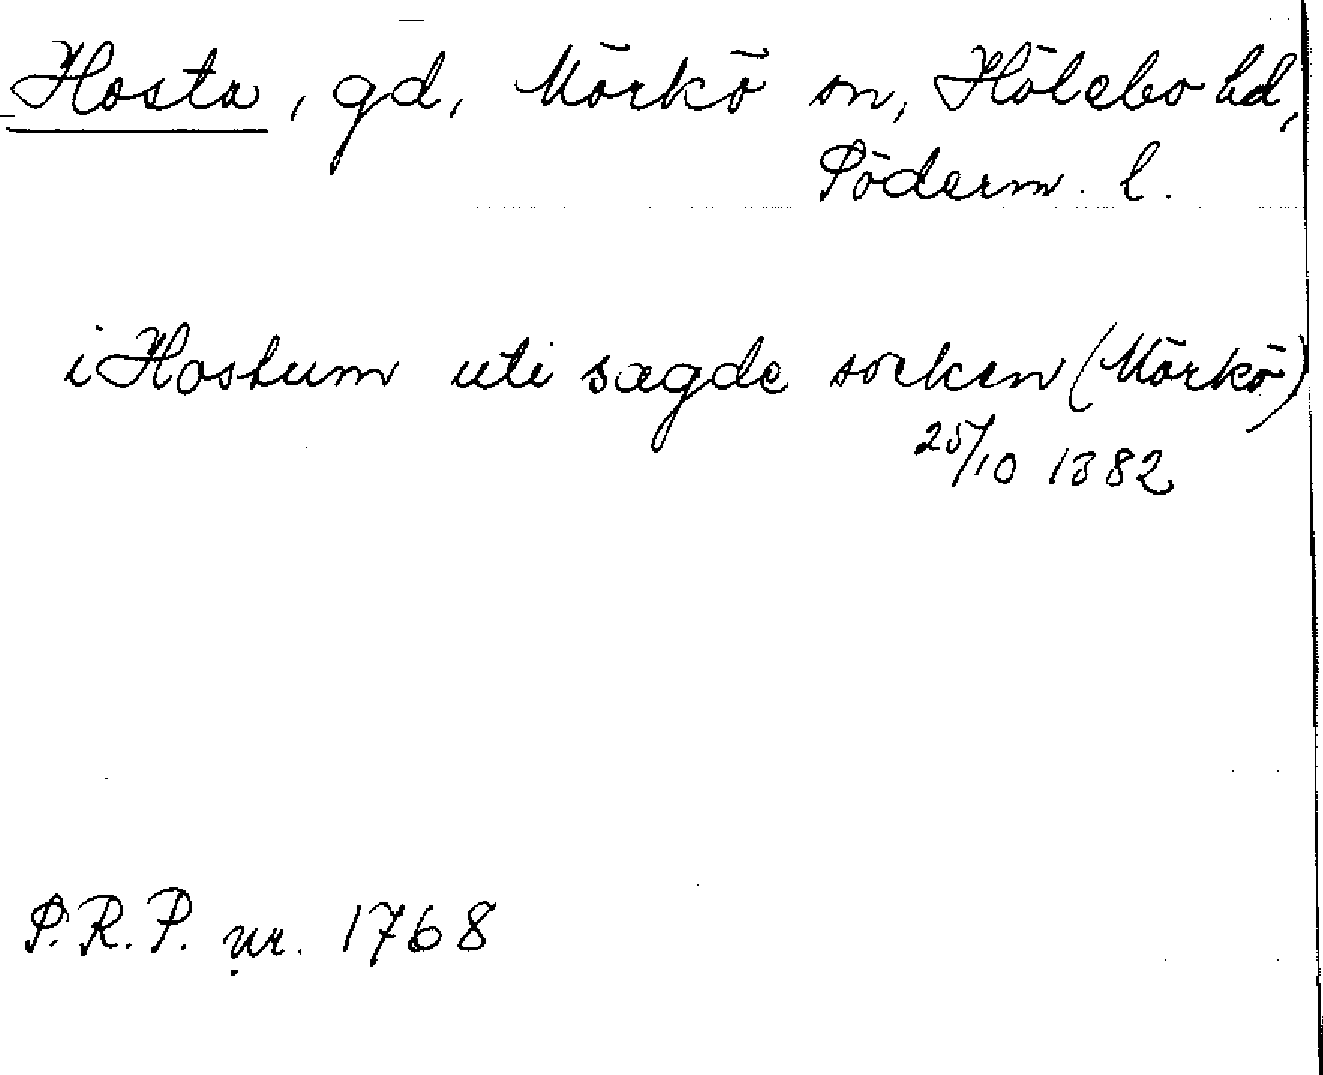 Hosta, gd, Mörkö sn, Hölebo hd,
Söderm. l.
i Hostum uti sagde socken (Mörkö)
25/10 1382
P.R.P. nr. 1768